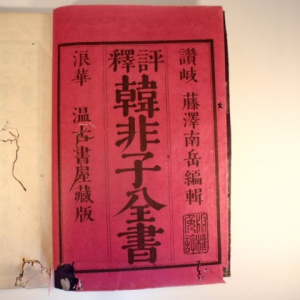 讃岐 藤澤南岳編輯
評釋
韓非子全書
浪華 温古書屋藏版